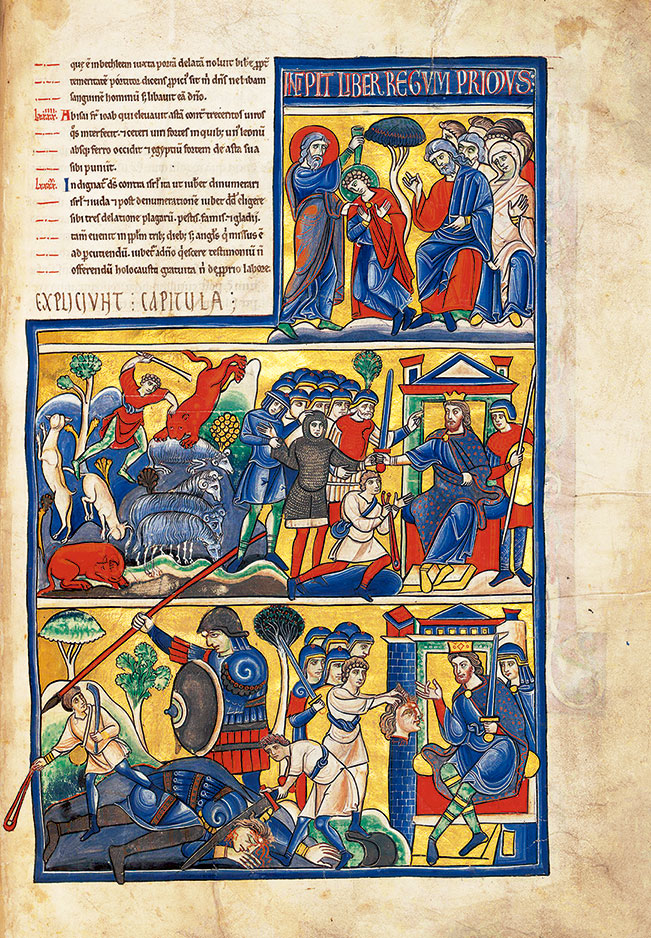 que ē in bethleem iuxta portā delatā noluit bibe ꝓpt
temeritatē portitor dicens ꝓpici sit m̄ dn̄s ne libam
sanguinē hominū sꝫ libauit eā dn̄o.
Abisai fr̄ ioab qui eleuauit astā cont trecentos uiros
q̄s interfecit. ⁊ ceteri uiri fortes in quibꝫ un' leonē
absqꝫ ferro occidit ⁊ egyptiū fortem de asta sua
sibi puniit.
Indignat' ds̄ contra isrl̄ ita ut iuber dinumerari
isrl̄ ⁊ iuda ⁊ post denumerationē iuber dd̄ eligere
sibi tres delatione plagarū. pestis. famis. ⁊ gladii
tam euenit in pplm̄ tribꝫ diebꝫ sꝫ angl̄s q' missus ē
ad ꝑcutiendū. iuber adn̄o q̄escere testimoniū n̄
offerendū holocausta gratuita n̄ de ꝓprio labore.
EXPLICIVNT : CAPITULA ;
INCPIT LIBER. REGVM PRIMVS: